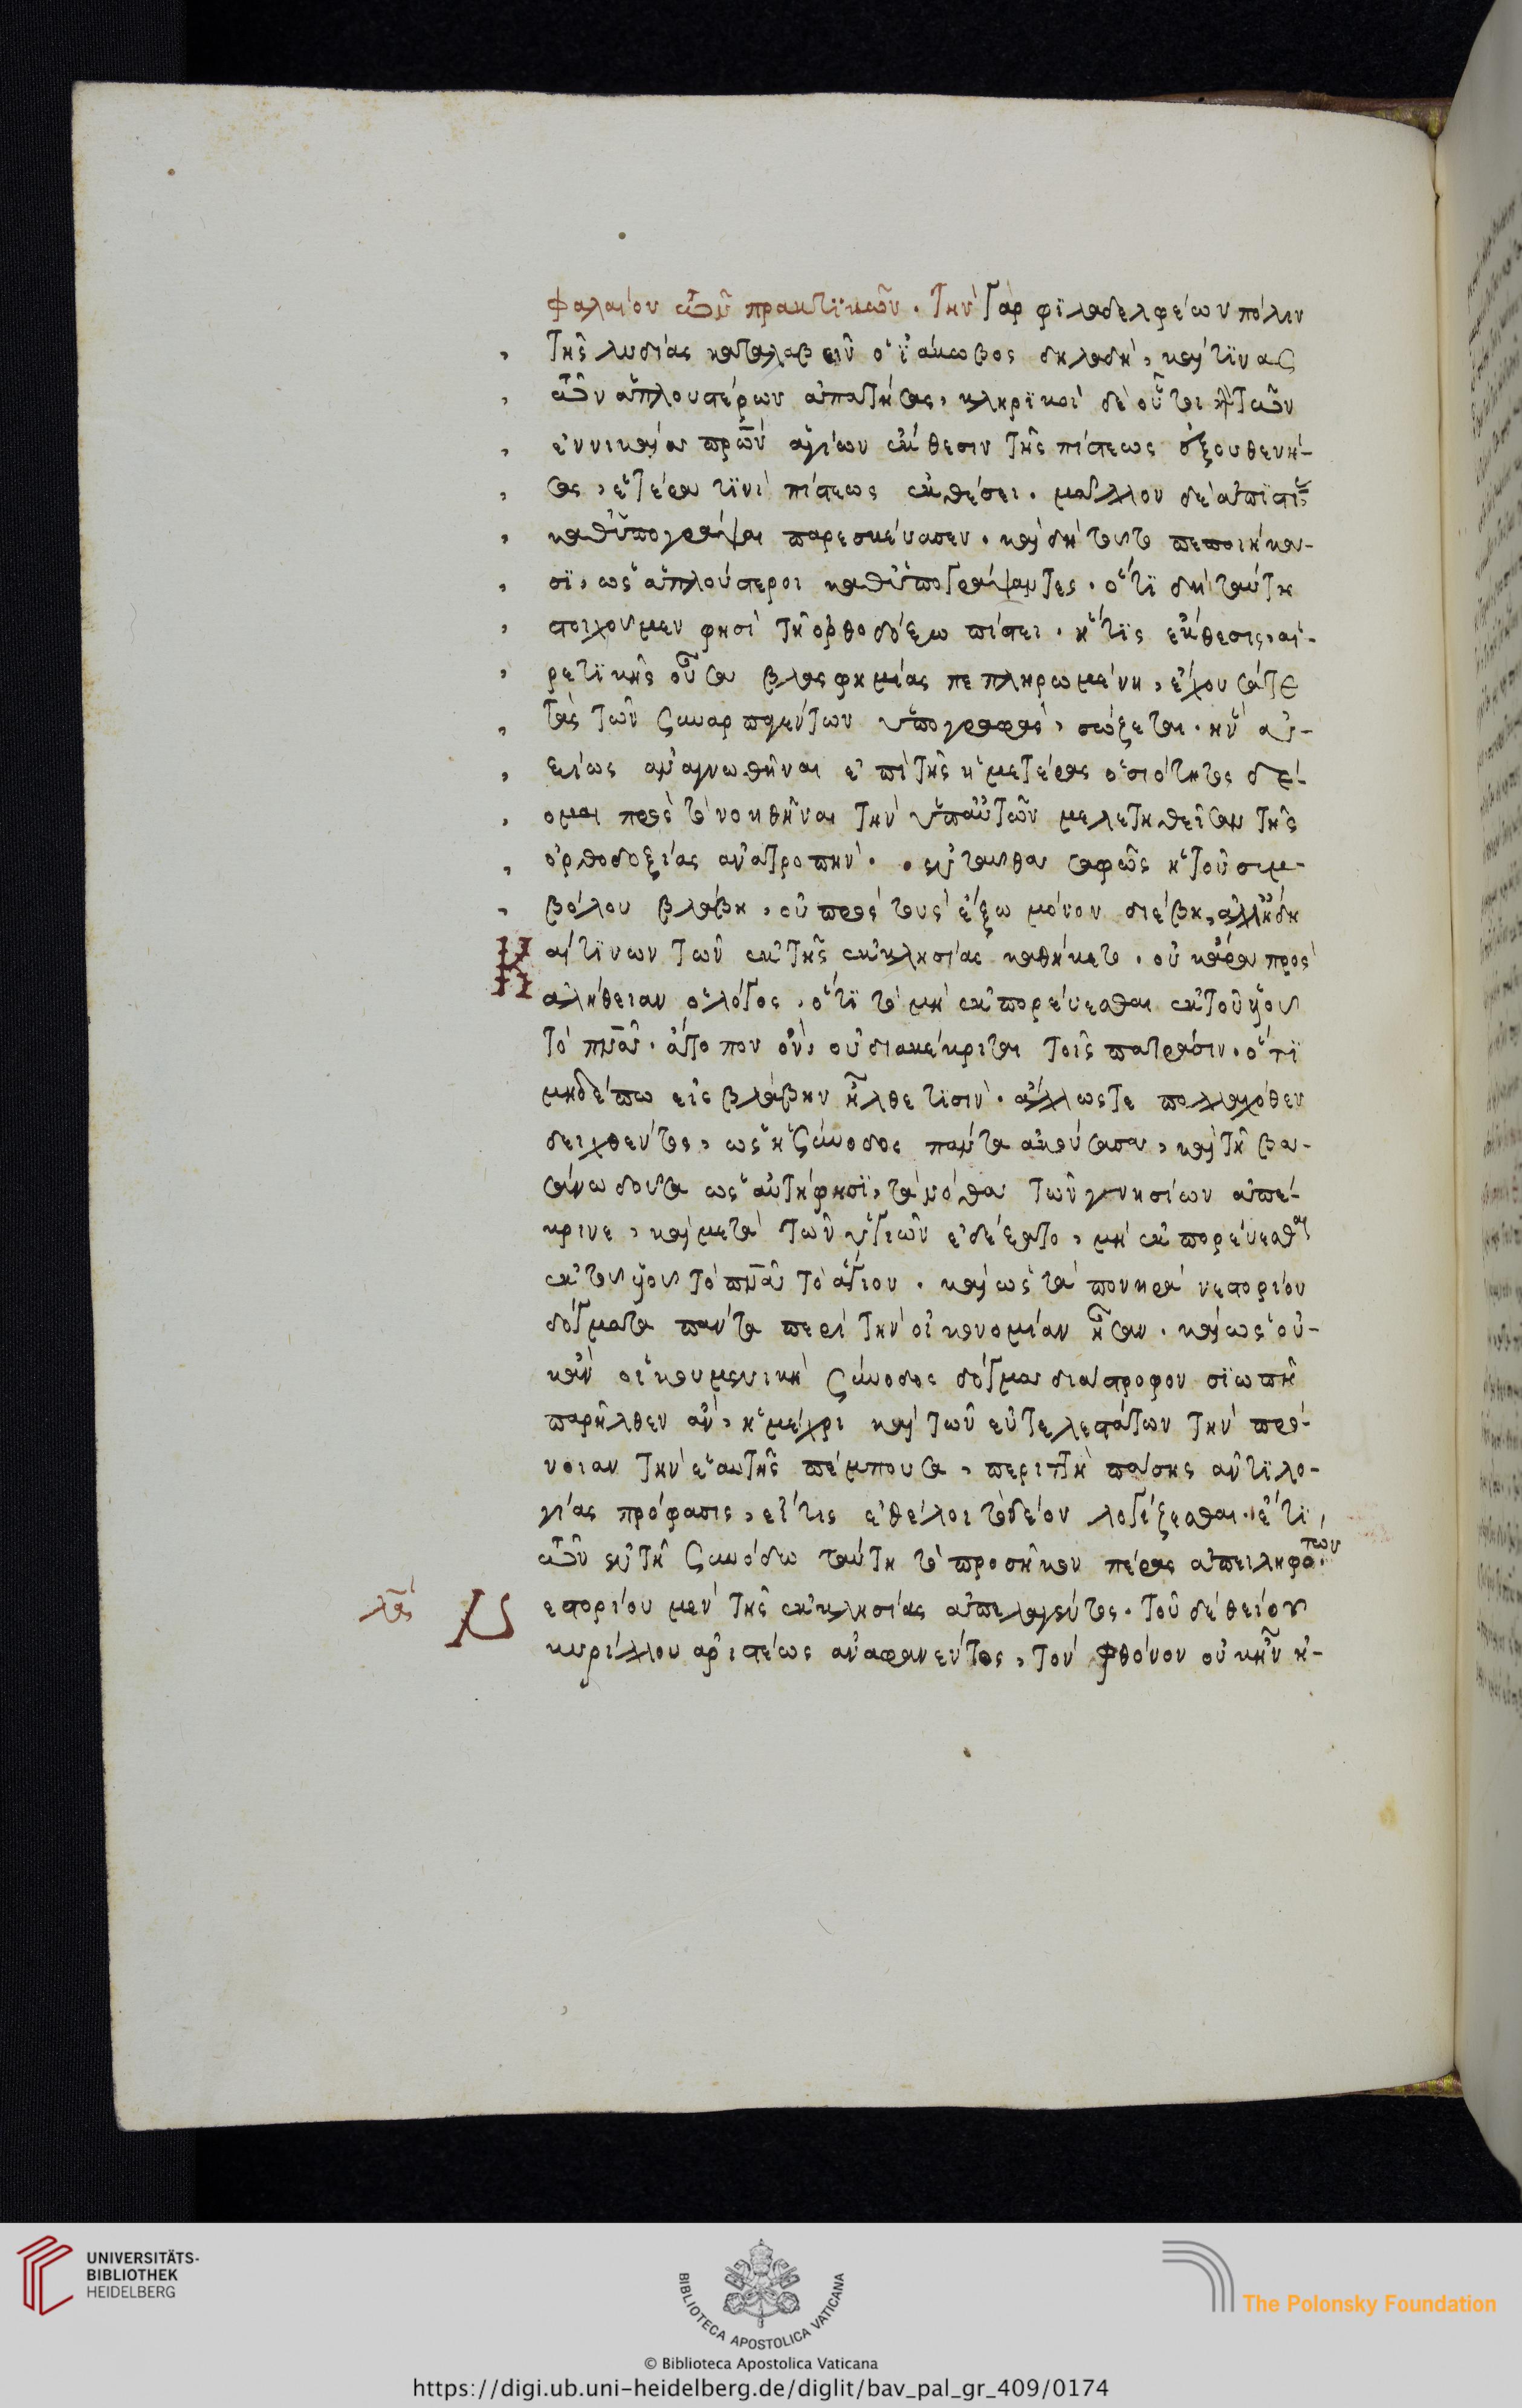 φαλαίου τῶν πρακτϊκῶν. Τὴν γὰρ φϊλαδελφέων πόλιν
τῆς λυδίας καταλαβεῖν ὁ ϊάκωβος δηλαδὴ, καὶ τϊνας
τῶν ἁπλουστέρων ἀπατήσας, κληρϊκοὶ δὲ οὗτοι, τῶν
ἐν νικαία πρῶν ἁγίων ἔκθεσιν τῆς πίστεως ἐξουθενή-
σας, ἑτέρα τϊνὶ πίστεως ἐκθέσει. μᾶλλον δὲ ἀπϊστίας
καθυπογράψαι παρεσκεύασεν. καὶ δὴ τοῦτο πεποιήκα-
σϊ, ὡς ἁπλούστεροι καθυπογράψαντες. ὅτϊ δὴ ταύτη
στοιχοῦμεν φησὶ τῆ ὀρθοδόξω πίστει. ἥτϊς ἔκθεσις, αἱ-
ρετϊκῆς οὖσα βλασφημίας πεπληρωμένη, ἔχουσά τε
τὰς τῶν συναρπαγέντων ὑπογραφὰς, σώζεται. ἣν ἀρ-
είως ἀναγνωσθῆναι ἐπὶ τῆς ἡμετέρας ὁσιότητος δέ-
ομαι πρὸς τὸ νοηθῆναι τὴν ὑπ' αὐτῶν μελετηθεῖσαν τῆς
ὀρθοδοξίας ἀνατροπήν. ἐνταῦθα σαφῶς ἡ τοῦ συμ-
βόλου βλάβη, οὐ πρὸς τοὺς ἔξω μόνον διέβη, ἀλλ' ἤδη
Καί τϊνων τῶν ἐκ τῆς ἐκκλησίας καθήκετο. οὐκ ἄρα πρὸς
ἀλήθειαν ὁ λόγος, ὅτϊ τὸ μὴ ἐκπορεύεσθαι ἐκ τοῦ υἱοῦ
τὸ πνᾶ. ἄτοπον ὂν, οὐ διακέκριται τοῖς πατράσιν. ὅτϊ
μηδέπω εἰς βλάβην ἦλθε τϊσίν. ἄλλως τε πολλαχόθεν
δειχθέντος, ὡς ἡ σύνοδος πάντα ἀκούσασα, καὶ τῆ βα-
σάνω δοῦσα ὡς αὐτή φησϊ, τὰ νόθα τῶν γνησίων ἀπέ-
κρινε, καὶ μετὰ τῶν ὑγιῶν ἐδέξατο, μὴ ἐκπορεύεσθαι
ἐκ τοῦ υἱοῦ τὸ πνᾶ τὸ ἅγιον. καὶ ὡς τὰ πονηρὰ νεστορίου
δόγματα πάντα περὶ τὴν οἰκονομίαν ἦσαν. καὶ ὡς οὐ-
κἂν οἰκουμενικὴ σύνοδος δόγμα διάστροφον σϊωπῆ
παρῆλθεν ἂν, ἡ μέχρι καὶ τῶν εὐτελεστάτων τὴν πρό-
νοιαν τὴν ἑαυτῆς πέμπουσα, περιττὴ πάσης ἀντϊλο-
γίας πρόφασις, εἴ τις ἐθέλοι τὸ δέον λογίζεσθαι. ἔτϊ,
τῶν ἐν τῆ συνόδω ταύτη τὸ προσῆκον πέρας ἀπειληφότων.
λς Ν εστορίου μὲν τῆς ἐκκλησίας ἀπελαγέντος. τοῦ δὲ θείου
κυρίλλου ἀριστέως ἀναφανέντος, τὸν φθόνον οὐκ ἦν ἠ-
UNIVERSITÄTS-
BIBLIOTHEK
HEIDELBERG
BIBLIOTECA APOSTOLICA VATICANA
The Polonsky Foundation
© Biblioteca Apostolica Vaticana
https://digi.ub.uni-heidelberg.de/diglit/bav_pal_gr_409/0174